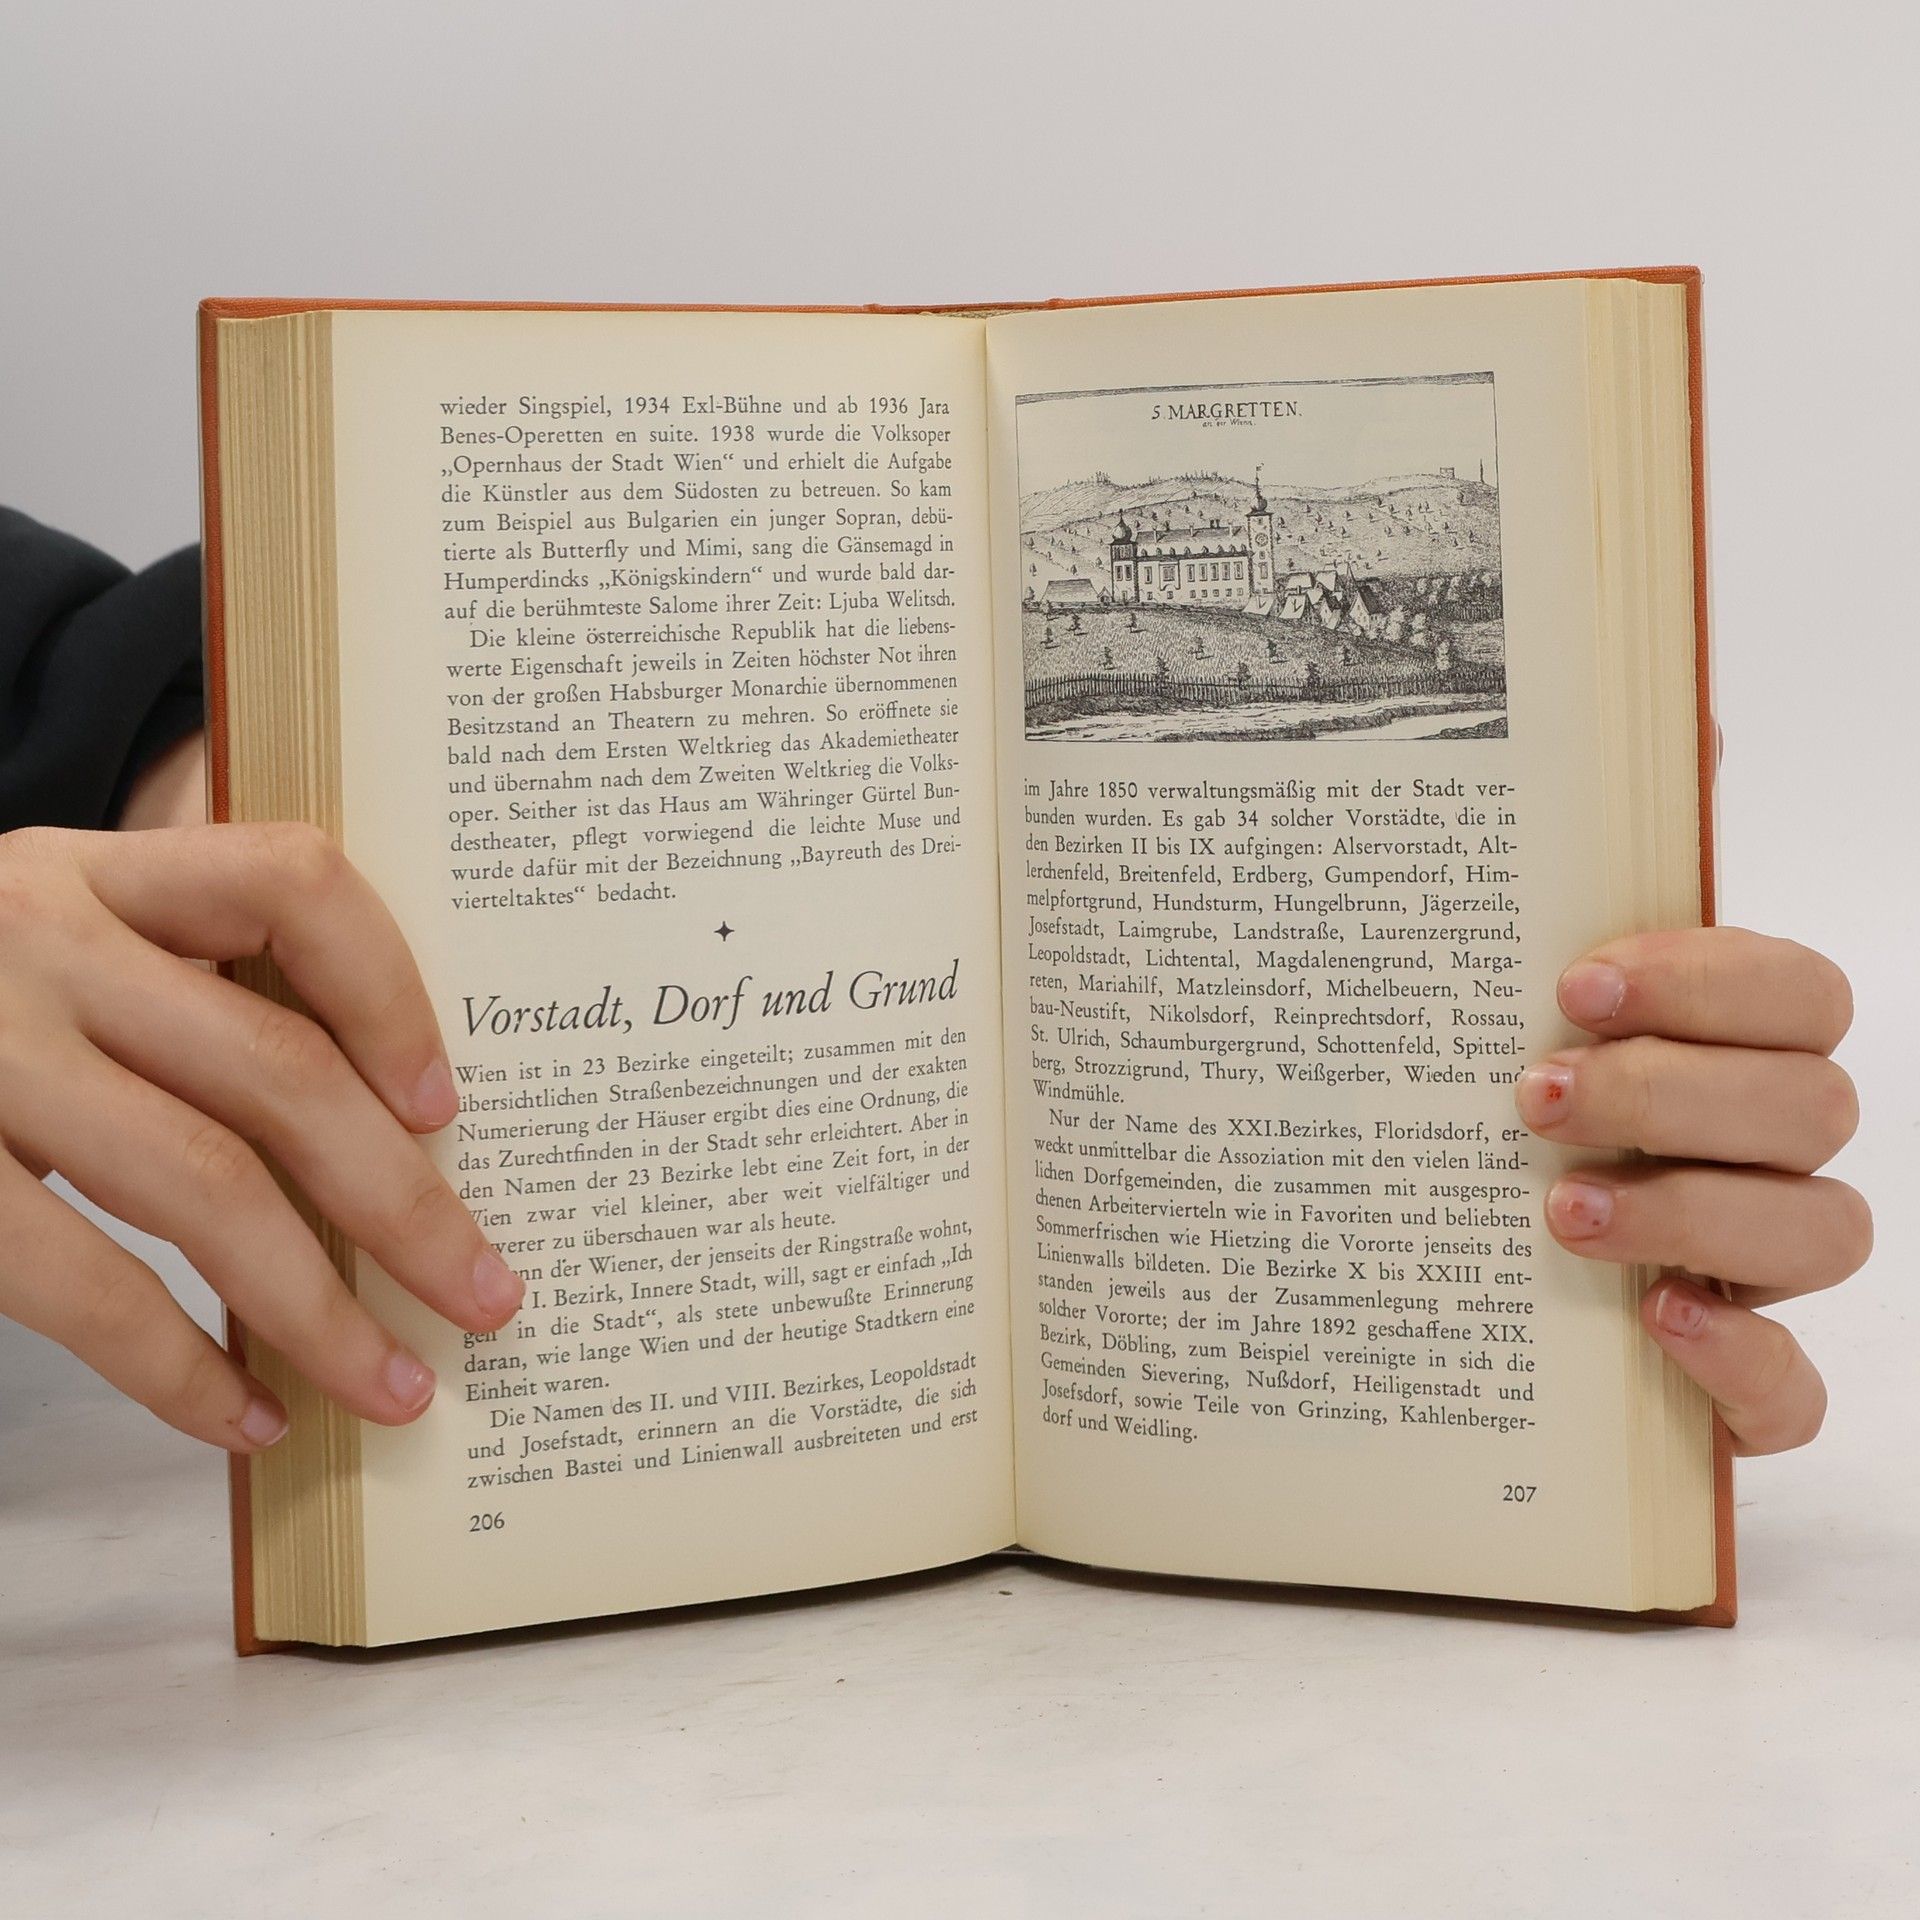 wieder Singspiel, 1934 Exl-Bühne und ab 1936 Jara
Benes-Operetten en suite. 1938 wurde die Volksoper
„Opernhaus der Stadt Wien“ und erhielt die Aufgabe
die Künstler aus dem Südosten zu betreuen. So kam
zum Beispiel aus Bulgarien ein junger Sopran, debü-
tierte als Butterfly und Mimi, sang die Gänsemagd in
Humperdincks „Königskindern“ und wurde bald dar-
auf die berühmteste Salome ihrer Zeit: Ljuba Welitsch.
Die kleine österreichische Republik hat die liebens-
werte Eigenschaft jeweils in Zeiten höchster Not ihren
von der großen Habsburger Monarchie übernommenen
Besitzstand an Theatern zu mehren. So eröffnete sie
bald nach dem Ersten Weltkrieg das Akademietheater
und übernahm nach dem Zweiten Weltkrieg die Volks-
oper. Seither ist das Haus am Währinger Gürtel Bun-
destheater, pflegt vorwiegend die leichte Muse und
wurde dafür mit der Bezeichnung „Bayreuth des Drei-
vierteltaktes“ bedacht.
Vorstadt, Dorf und Grund
Wien ist in 23 Bezirke eingeteilt; zusammen mit den
übersichtlichen Straßenbezeichnungen und der exakten
Numerierung der Häuser ergibt dies eine Ordnung, die
das Zurechtfinden in der Stadt sehr erleichtert. Aber in
den Namen der 23 Bezirke lebt eine Zeit fort, in der
Wien zwar viel kleiner, aber weit vielfältiger und
zu überschauen war als heute.
der Wiener, der jenseits der Ringstraße wohnt,
I. Bezirk, Innere Stadt, will, sagt er einfach „Ich
in die Stadt“, als stete unbewußte Erinnerung
daran, wie lange Wien und der heutige Stadtkern eine
Einheit waren.
Die Namen des II. und VIII. Bezirkes, Leopoldstadt
und Josefstadt, erinnern an die Vorstädte, die sich
zwischen Bastei und Linienwall ausbreiteten und erst
206
5. MARGRETTEN.
an der Wienn.
im Jahre 1850 verwaltungsmäßig mit der Stadt ver-
bunden wurden. Es gab 34 solcher Vorstädte, die in
den Bezirken II bis IX aufgingen: Alservorstadt, Alt-
lerchenfeld, Breitenfeld, Erdberg, Gumpendorf, Him-
melpfortgrund, Hundsturm, Hungelbrunn, Jägerzeile,
Josefstadt, Laimgrube, Landstraße, Laurenzergrund,
Leopoldstadt, Lichtental, Magdalenengrund, Marga-
reten, Mariahilf, Matzleinsdorf, Michelbeuern, Neu-
bau-Neustift, Nikolsdorf, Reinprechtsdorf, Rossau,
St. Ulrich, Schaumburgergrund, Schottenfeld, Spittel-
berg, Strozzigrund, Thury, Weißgerber, Wieden und
Windmühle.
Nur der Name des XXI.Bezirkes, Floridsdorf, er-
weckt unmittelbar die Assoziation mit den vielen länd-
lichen Dorfgemeinden, die zusammen mit ausgespro-
chenen Arbeitervierteln wie in Favoriten und beliebten
Sommerfrischen wie Hietzing die Vororte jenseits des
Linienwalls bildeten. Die Bezirke X bis XXIII ent-
standen jeweils aus der Zusammenlegung mehrere
solcher Vororte; der im Jahre 1892 geschaffene XIX.
Bezirk, Döbling, zum Beispiel vereinigte in sich die
Gemeinden Sievering, Nußdorf, Heiligenstadt und
Josefsdorf, sowie Teile von Grinzing, Kahlenberger-
dorf und Weidling.
207